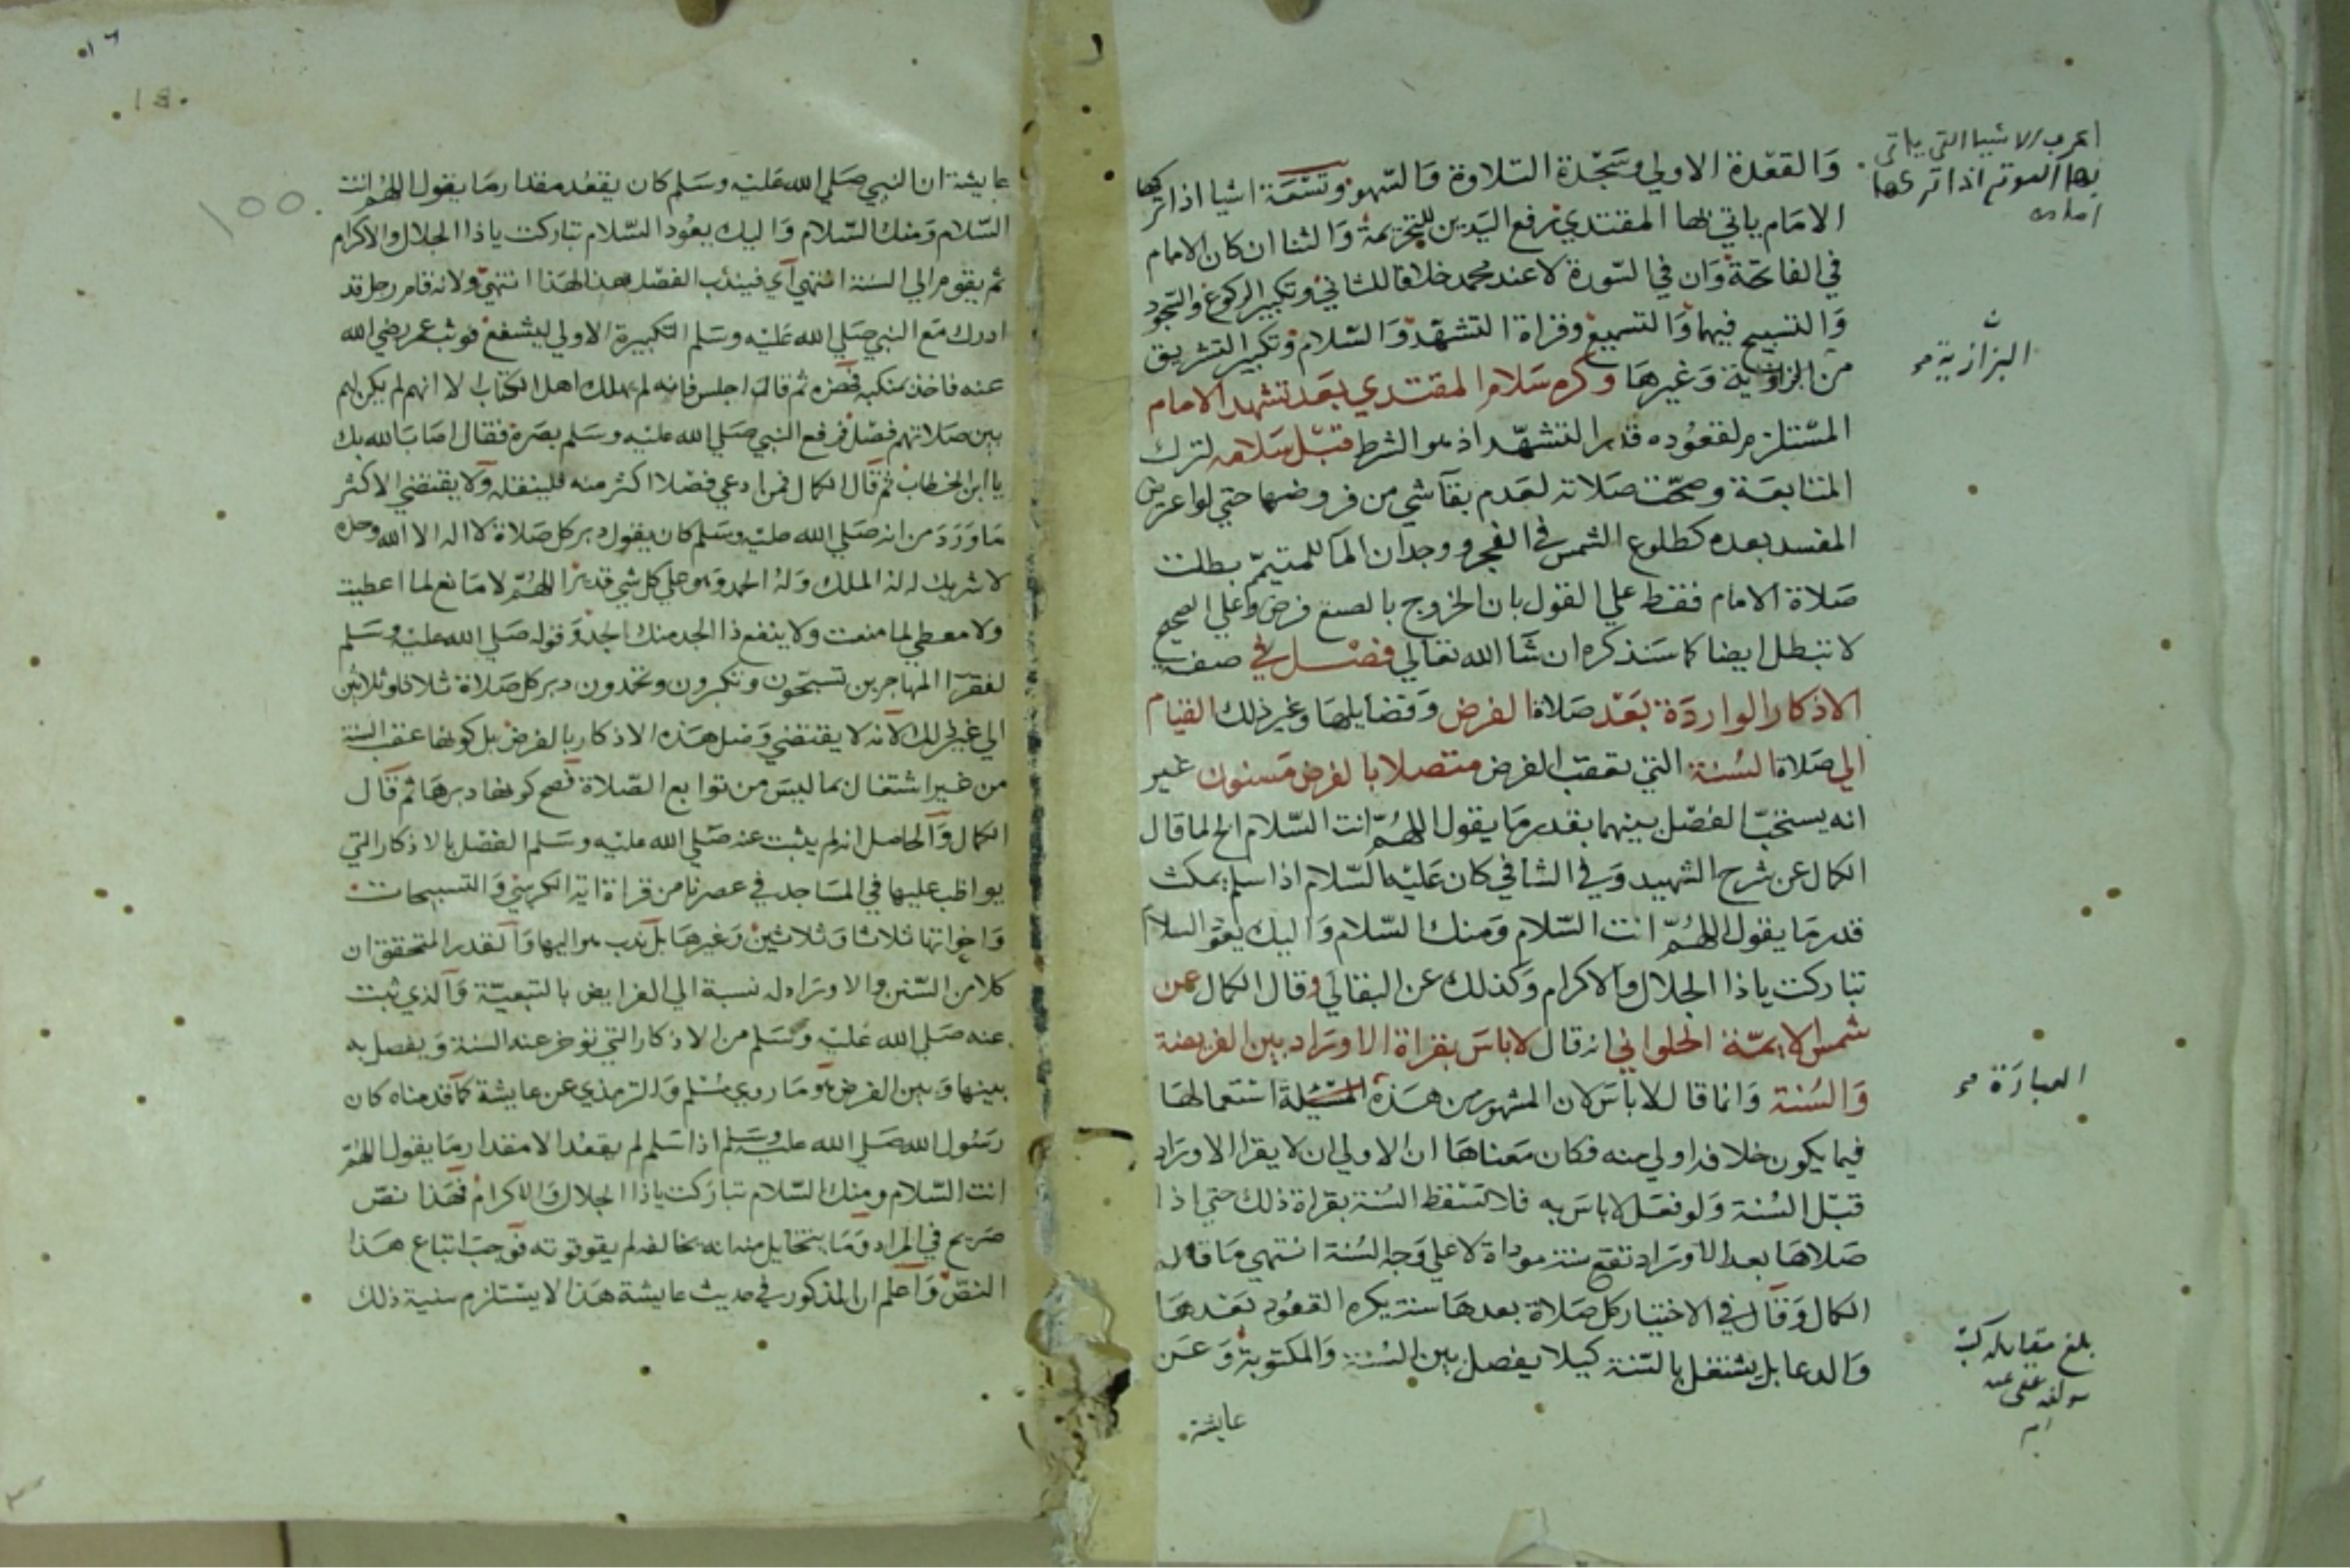 والقعدة الاولي وسجدة التلاوة والسهو وتسعة اشيا اذا تركها
الامام ياتي بها المقتدي رفع اليدين للتحريمة والثنا ان كان الامام
في الفاتحة وان في السورة لا عند محمد خلافا للثاني وتكبير الركوع والسجود
والتسبيح فيهما والتسميع وقراة التشهد والسلام وتكبير التشريق
من البزازية وغيرها وكره سلام المقتدي بعد تشهد الامام
المستلزم لقعوده قدر التشهد اذ هو الشرط قبل سلامه لترك
المتابعة وصحت صلاته لعدم بقا شي من فروضها حتي لو اعرض
المفسد بعده كطلوع الشمس في الفجر ووجدان الما للمتيمم بطلت
صلاة الامام فقط علي القول بان الخروج بالصنع فرض وعلي الصحيح
لا تبطل ايضا كما سنذكره ان شا الله تعالي فصل في صفة
الاذكار الواردة بعد صلاة الفرض وفضايلها وغير ذلك القيام
الي صلاة السنة التي تعقب الفرض متصلا بالفرض مسنون غير
انه يستحب الفصل بينهما بقدر ما يقول اللهم انت السلام الخ لما قال
الكمال عن شرح الشهيد وفي الشافي كان عليه السلام اذا سلم يمكث
قدر ما يقول اللهم انت السلام ومنك السلام واليك يعود السلام
تباركت ياذا الجلال والاكرام وكذلك عن البقالي وقال الكمال عن
شمس الايمة الحلواني انه قال لا باس بقراة الاوراد بين الفريضة
والسنة وانما قال لا باس لان المشهور من هذه المسئلة استعمالها
فيما يكون خلافه اولي منه فكان معناها ان الاولي ان لا يقرا الاوراد
قبل السنة ولو فعل لا باس به فلا تسقط السنة بقراة ذلك حتي اذا
صلاها بعد الاوراد تقع سنة موداة لا علي وجه السنة انتهي ما قاله
الكمال وقال في الاختيار كل صلاة بعدها سنة يكره القعود بعدها
والدعا بل يشتغل بالسنة كيلا يفصل بين السنة والمكتوبة وعن
عايشة
اعرف الاشيا التي ياتي
بها الموتم اذا تركها
امامه
البزازية صح
العبارة صح
بلغ مقابلة كتبه
مولفه عفي عنه
عايشة ان النبي صلي الله عليه وسلم كان يقعد مقدار ما يقول اللهم انت
السلام ومنك السلام واليك يعود السلام تباركت ياذا الجلال والاكرام
ثم يقوم الي السنة انتهي اي فيندب الفصل بهذا لهذا انتهي ولانه قام رجل قد
ادرك مع النبي صلي الله عليه وسلم التكبيرة الاولي ليشفع فوثب عمر رضي الله
عنه فاخذ بمنكبه فهزه ثم قال اجلس فانه لم يهلك اهل الكتاب الا انهم لم يكن لهم
بين صلاتهم فصل فرفع النبي صلي الله عليه وسلم بصره فقال اصاب الله بك
يا ابن الخطاب ثم قال الكمال فمن ادعي فصلا اكثر منه فلينقله ولا يقتضي الاكثر
ما ورد من انه صلي الله عليه وسلم كان يقول دبر كل صلاة لا اله الا الله وحده
لا شريك له له الملك وله الحمد وهو علي كل شي قدير اللهم لا مانع لما اعطيت
ولا معطي لما منعت ولا ينفع ذا الجد منك الجد وقوله صلي الله عليه وسلم
لفقرا المهاجرين تسبحون وتكبرون وتحمدون دبر كل صلاة ثلاثا وثلاثين
الي غير ذلك لانه لا يقتضي وصل هذه الاذكار بالفرض بل كونها عقب السنة
من غير اشتغال بما ليس من توابع الصلاة فصح كونها دبرها ثم قال
الكمال والحاصل انه لم يثبت عنه صلي الله عليه وسلم الفصل بالاذكار التي
يواظب عليها في المساجد في عصرنا من قراة اية الكرسي والتسبيحات
واخواتها ثلاثا وثلاثين وغيرها بل ندب هو اليها والقدر المتحقق ان
كلا من السنن والاوراد له نسبة الي الفرايض بالتبعية والذي ثبت
عنه صلي الله عليه وسلم من الاذكار التي توخر عنه السنة ويفصل به
بينها وبين الفرض هو ما روي مسلم والترمذي عن عايشة كما قدمناه كان
رسول الله صلي الله عليه وسلم اذا سلم لم يقعد الا مقدار ما يقول اللهم
انت السلام ومنك السلام تباركت ياذا الجلال والاكرام فهذا نص
صريح في المراد وما يتخايل منه انه يخالفه لم يقو قوته فوجب اتباع هذا
النص واعلم ان المذكور في حديث عايشة هذا لا يستلزم سنية ذلك